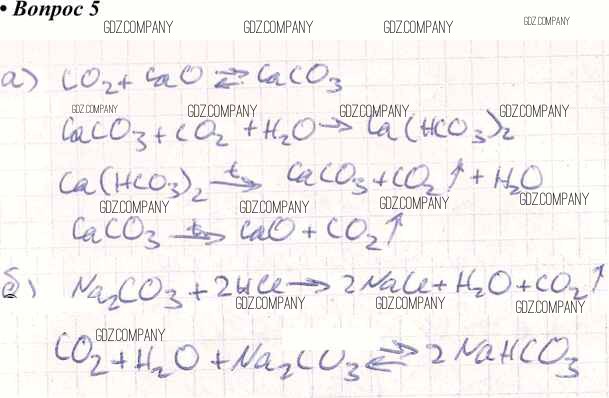 • Вопрос 5
GDZ.COMPANY GDZ.COMPANY GDZ.COMPANY GDZ.COMPANY
а) CO₂ + CaO ⇄ CaCO₃
GDZ.COMPANY GDZ.COMPANY GDZ.COMPANY GDZ.COMPANY
CaCO₃ + CO₂ + H₂O → Ca(HCO₃)₂
Ca(HCO₃)₂ –t→ CaCO₃ + CO₂↑ + H₂O
GDZ.COMPANY GDZ.COMPANY GDZ.COMPANY GDZ.COMPANY
CaCO₃ –t→ CaO + CO₂↑
б) Na₂CO₃ + 2HCl → 2NaCl + H₂O + CO₂↑
GDZ.COMPANY GDZ.COMPANY GDZ.COMPANY
GDZ.COMPANY
CO₂ + H₂O + Na₂CO₃ ⇄ 2NaHCO₃